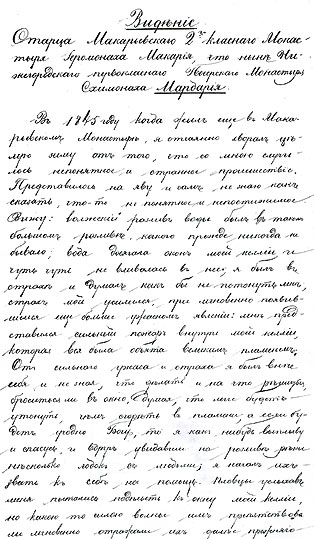 Видѣніе
Старца Макарьевскаго 2го класнаго Мона-
стыря Іеромонаха Макарія, что нынѣ Ни-
жегородскаго первокласнаго Печерскаго Монастыря
Схимонаха Мардарія.
Въ 1845 году когда былъ еще въ Мака-
рьевскомъ Монастырѣ, я отчаянно хворалъ цѣ-
лую зиму отъ того, что со мною случи-
лось непонятное и странное происшествіе.
Представилось на яву и самъ не знаю какъ
сказать, что-то не понятное и непостижимое
Вижу: волжскій разливъ воды былъ въ такомъ
большомъ разливѣ, какого прежде никогда не
бывало; вода достигала оконъ моей келліи и
чуть чуть не вливалась въ нее; я былъ въ
страхѣ и думалъ какъ бы не потонуть мнѣ,
страхъ мой усилился, при мгновенно появив-
шемся еще больше ужасномъ явленіи: мнѣ пред-
ставился сильный пожаръ внутри моей келліи,
которая вся была объята великимъ пламенемъ.
Отъ сильнаго ужаса и страха я былъ внѣ
себя и не зналъ, что дѣлать и на что рѣшиться,
броситься ли въ окно, думая, что легче будетъ
утонуть, чѣмъ сгорѣть въ пламени, а если бу-
детъ угодно Богу, то я какъ нибудь выплыву
и спасусь, и вдругъ увидѣвши на разливѣ рѣки
нѣсколько лодокъ съ людьми; я началъ ихъ
звать къ себѣ на помощь. Пловцы услыхавъ
меня пытались подплыть къ окну моей келліи,
но какою то силою волны имъ препятствова
ли мгновенно отражали ихъ далѣе прежняго